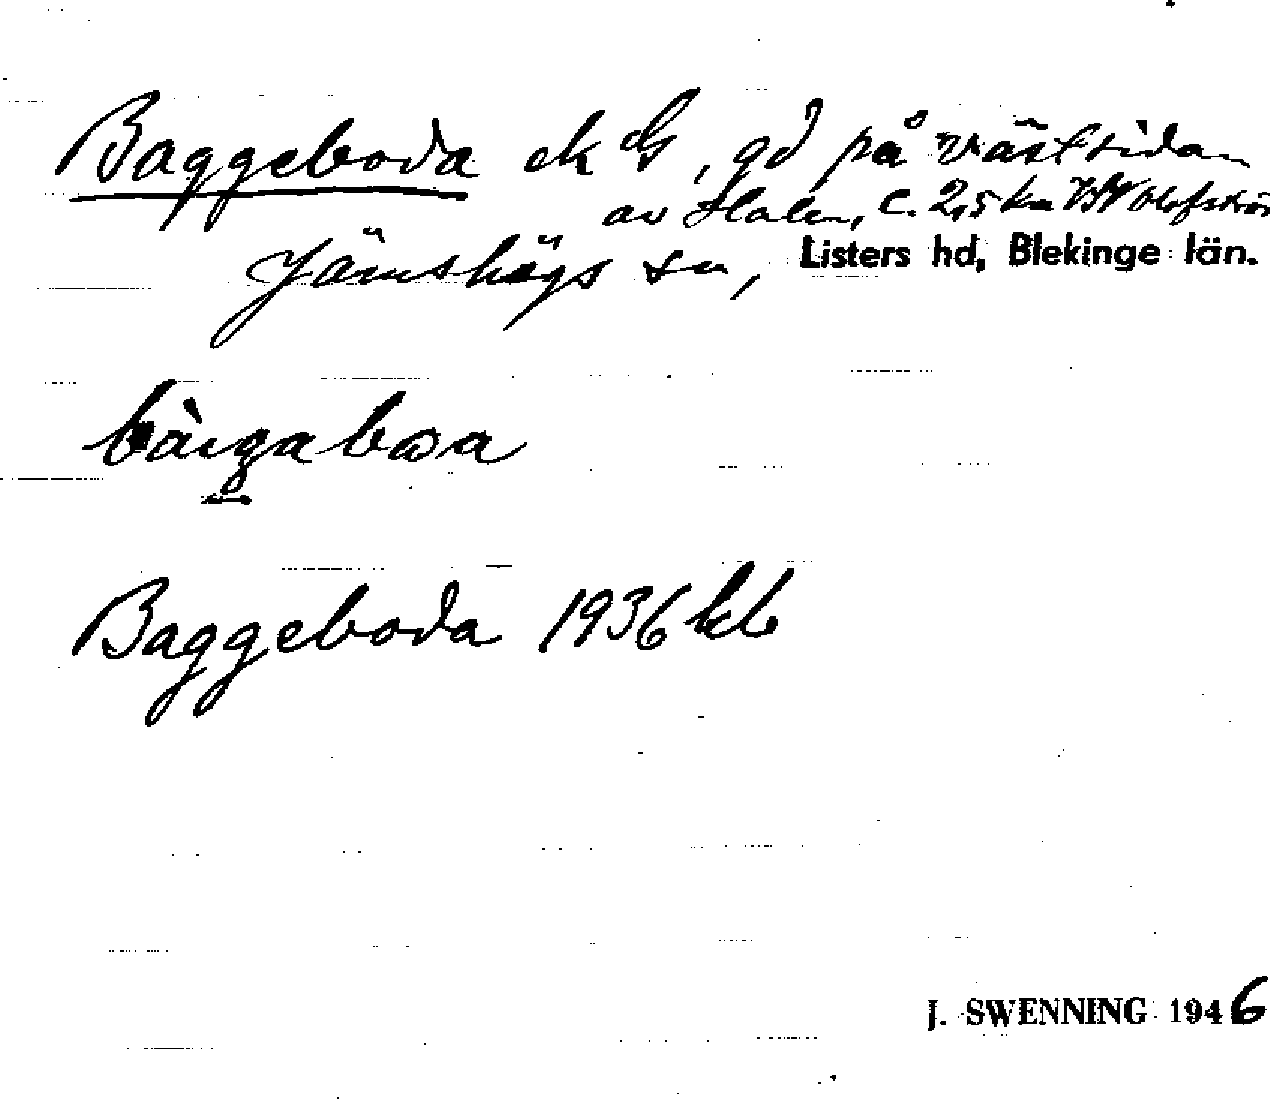 Baggeboda ek G, gd på västsidan
av Halen, c. 2,5 km VSV Olofström
Jämshögs sn, Listers hd, Blekinge län.
Baggeboda 1936 kb
J. SWENNING 1946